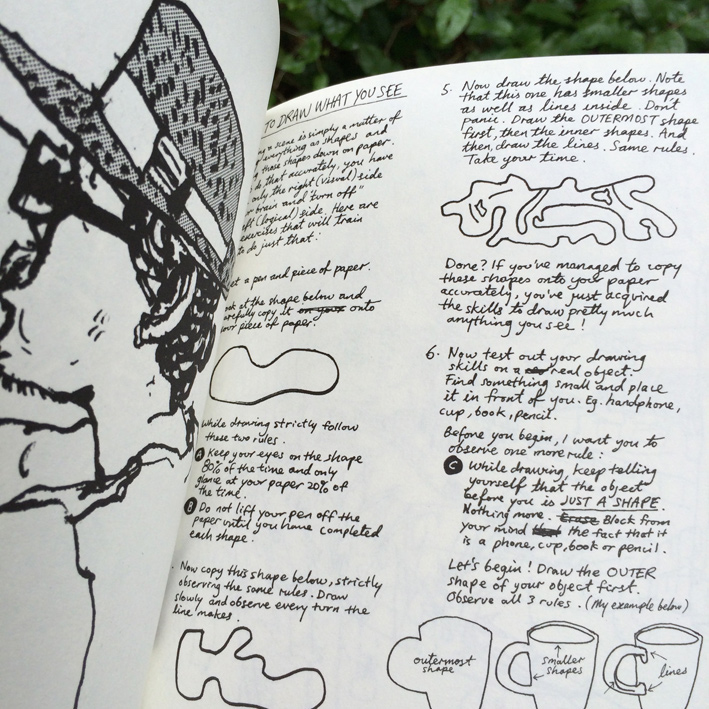 TO DRAW WHAT YOU SEE
a scene is simply a matter of
everything as shapes and
those shapes down on paper.
that accurately, you have
only the right (visual) side
brain and "turn off"
(logical) side. Here are
exercises that will train
to do just that:
a pen and piece of paper.
at the shape below and
carefully copy it on your onto
your piece of paper.
While drawing strictly follow
these two rules.
A Keep your eyes on the shape
80% of the time and only
glance at your paper 20% of
the time.
B Do not lift your pen off the
paper until you have completed
each shape.
Now copy this shape below, strictly
observing the same rules. Draw
slowly and observe every turn the
line makes.
5. Now draw the shape below. Note
that this one has smaller shapes
as well as lines inside. Don't
panic. Draw the OUTERMOST shape
first, then the inner shapes. And
then, draw the lines. Same rules.
Take your time.
Done? If you've managed to copy
these shapes onto your paper
accurately, you've just acquired
the skills to draw pretty much
anything you see!
6. Now test out your drawing
skills on a real object.
Find something small and place
it in front of you. Eg. handphone,
cup, book, pencil.
Before you begin, I want you to
observe one more rule:
C While drawing, keep telling
yourself that the object
before you is JUST A SHAPE.
Nothing more. Erase Block from
your mind the fact that it
is a phone, cup, book or pencil.
Let's begin! Draw the OUTER
shape of your object first.
Observe all 3 rules. (My example below)
outermost
shape
smaller
shapes
lines